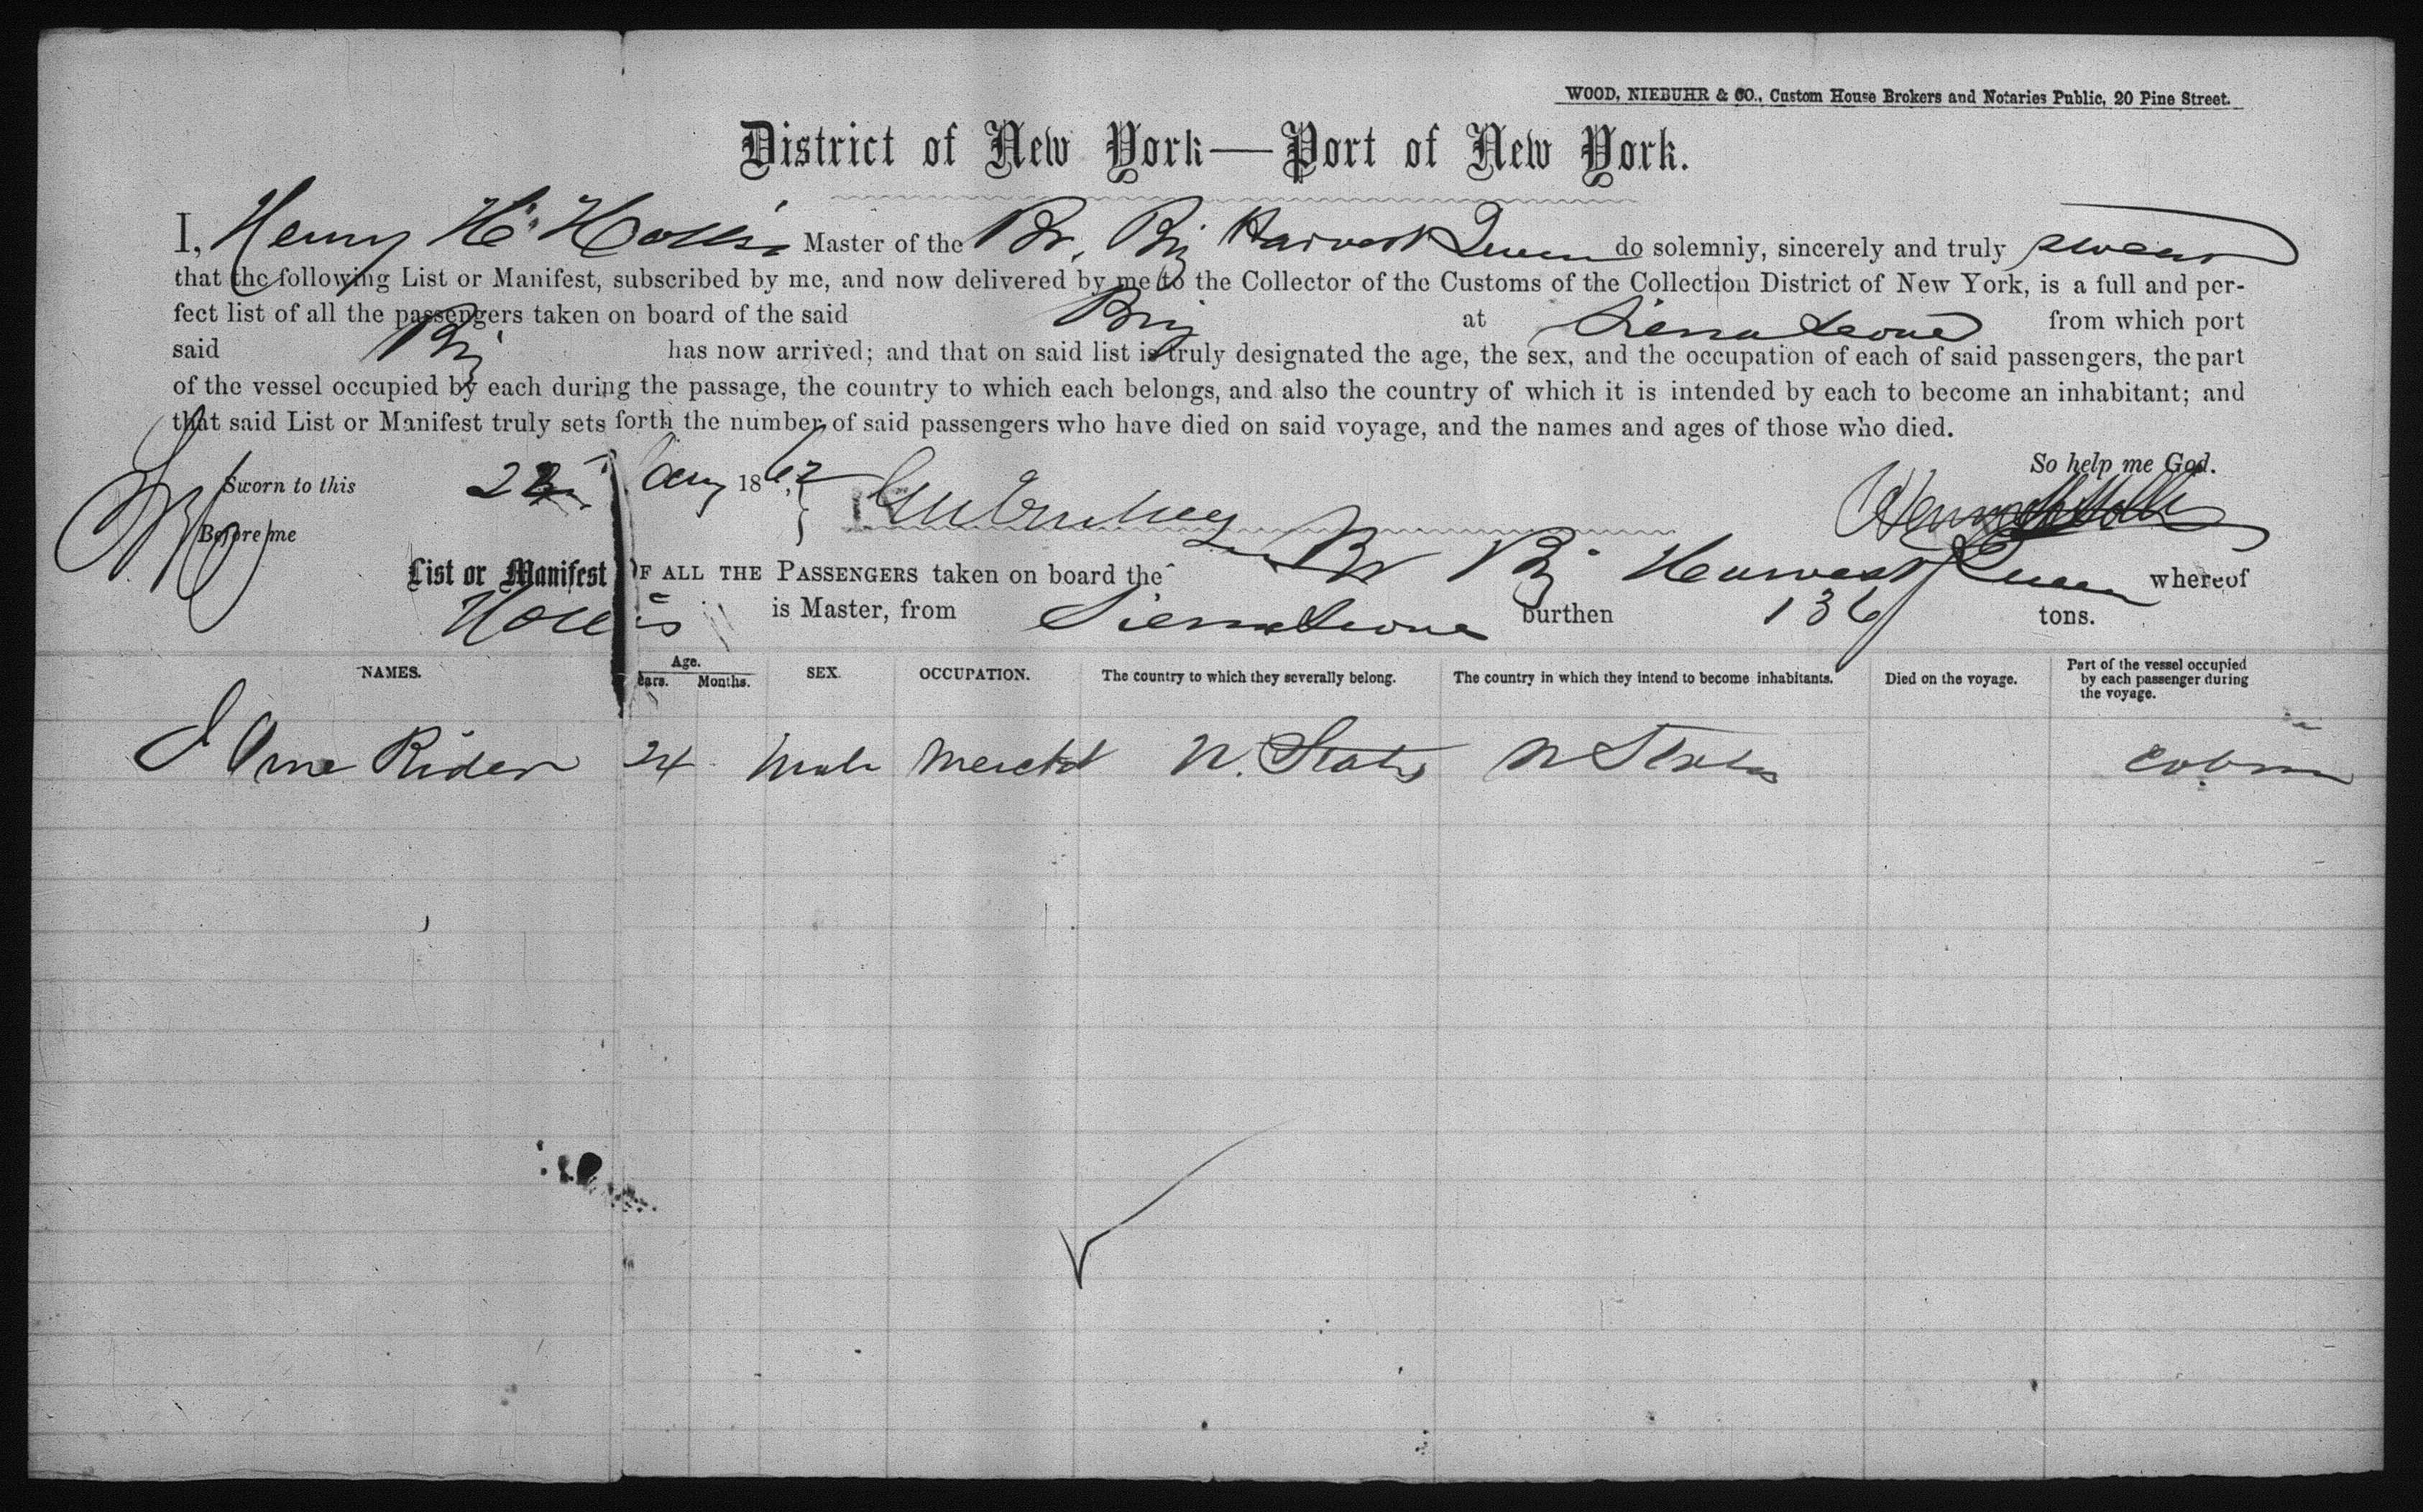 WOOD, NIEBUHR & CO., Custom House Brokers and Notaries Public, 20 Pine Street.
District of New York—Port of New York.
I, Henry H. Hollis Master of the Br. Brig Harvest Queen do solemnly, sincerely and truly swear
that the following List or Manifest, subscribed by me, and now delivered by me to the Collector of the Customs of the Collection District of New York, is a full and per-
fect list of all the passengers taken on board of the said Brig at Sierra Leone from which port
said Brig has now arrived; and that on said list is truly designated the age, the sex, and the occupation of each of said passengers, the part
of the vessel occupied by each during the passage, the country to which each belongs, and also the country of which it is intended by each to become an inhabitant; and
that said List or Manifest truly sets forth the number of said passengers who have died on said voyage, and the names and ages of those who died.
So help me God.
Sworn to this 22 1862
Before me
List or Manifest OF ALL THE PASSENGERS taken on board the Br Brig Harvest Queen whereof
Hollis is Master, from Sierra Leone burthen 136 tons.
NAMES. Age. Years. Months. SEX. OCCUPATION. The country to which they severally belong. The country in which they intend to become inhabitants. Died on the voyage. Part of the vessel occupied by each passenger during the voyage.
Rider 24 Male Mercht U. States U States Cabin